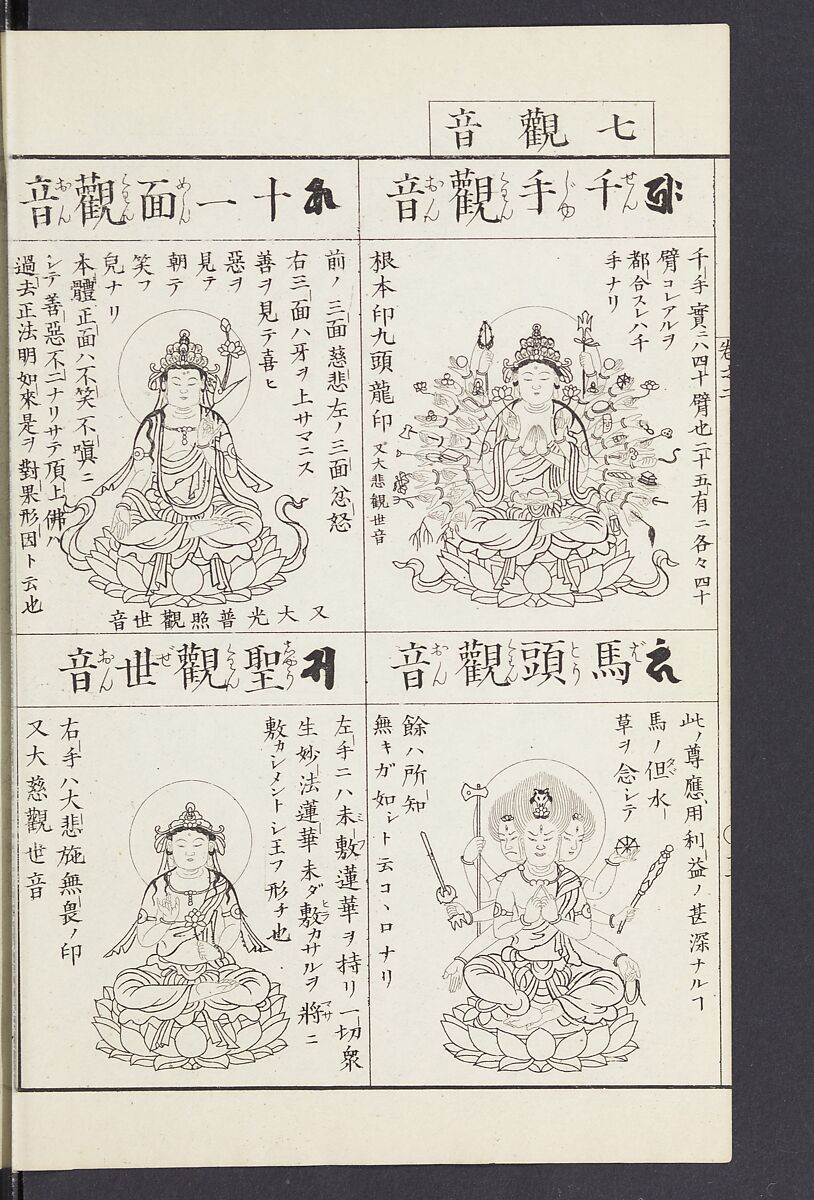 七觀音
千手觀音
せんじゆくわんおん
千手實ニハ四十臂也二十五有ニ各々四十
臂コレアルヲ
都合スレハ千
手ナリ
根本印九頭龍印
又大悲觀世音
十一面觀音
めんくわんおん
前ノ三面慈悲左ノ三面忿怒
右三面ハ牙ヲ上サマニス
善ヲ見テ喜ヒ
惡ヲ
見テ
朝テ
笑フ
皃ナリ
本體正面ハ不笑不嗔ニ
シテ善惡不二ナリサテ頂上佛ハ
過去正法明如來是ヲ對果形因ト云也
又大光普照觀世音
馬頭觀音
ばとうくわんおん
此ノ尊應用利益ノ甚深ナルヿ
馬ノ但水
草ヲ念シテ
餘ハ所知
無キガ如シト云コヽロナリ
聖觀世音
しやうくわんぜおん
左手ニハ未敷蓮華ヲ持リ一切衆
生妙法蓮華未ダ敷カサルヲ將ニ
敷カシメントシ玉フ形チ也
右手ハ大悲施無畏ノ印
又大慈觀世音